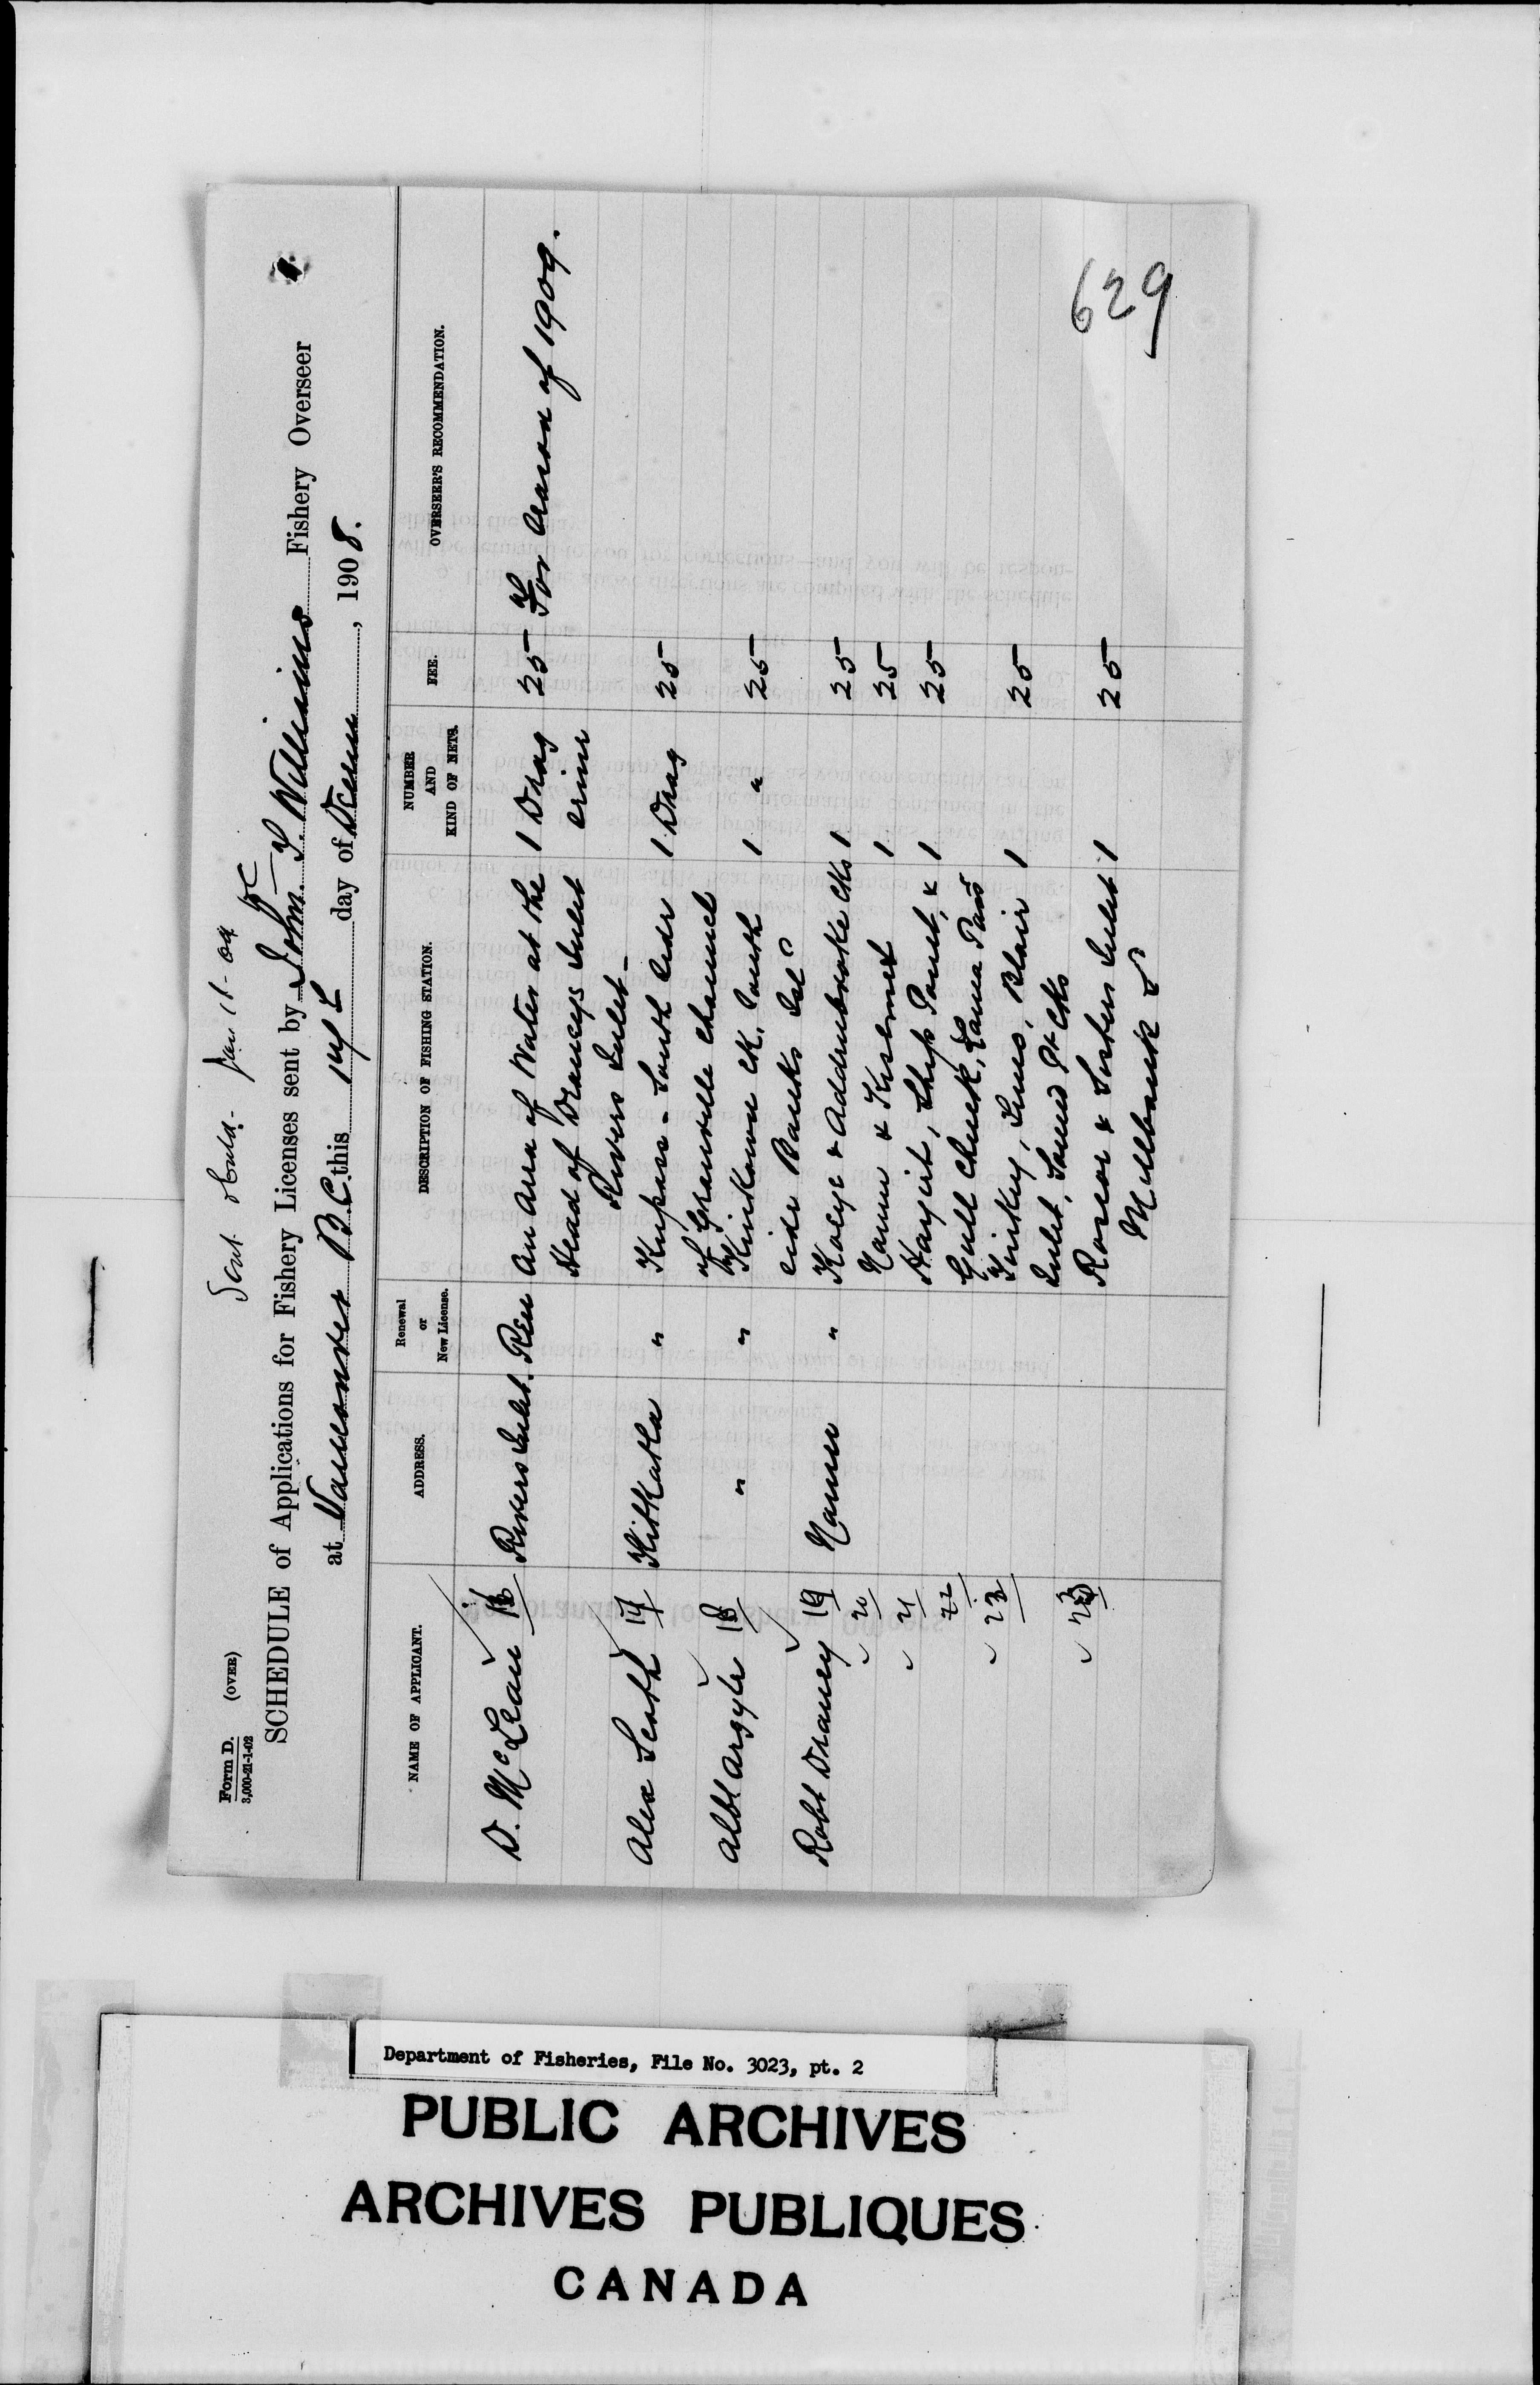 Form D.
3,000-21-1-02
(OVER)
Sent Jan 11-09
SCHEDULE of Applications for Fishery Licenses sent by John T. Williams Fishery Overseer
at Vancouver B.C. this 14th day of Decem, 1908.
NAME OF APPLICANT. ADDRESS. Renewal or New License. DESCRIPTION OF FISHING STATION. NUMBER AND KIND OF NETS. FEE. OVERSEER'S RECOMMENDATION.
D. McLean 16 Rivers Inlet. Ren An area of Water at the 1 Drag 25 For season of 1909.
Head of Draneys Inlet seine
Rivers Inlet
Alex Scott 17 Kitkatla " - South side 1 Drag 25
of Grenville Channel
Albt Argyle 18 " " Kinkown Ck. South 1 " 25
side Banks Isl
Robt Draney 19 Namu " Koeye & Addenbroke Cks 1 25
20 Namu & Kisameet 1 25
21 Point, & 1 25
22 Gull Chuck, Lama Pass
23 Kisky, , Blair 1 25
Inlet, Sound Pt Cks
Roscoe & Inlet 1 25
Millbank Sd
629
Department of Fisheries, File No. 3023, pt. 2
PUBLIC ARCHIVES
ARCHIVES PUBLIQUES
CANADA